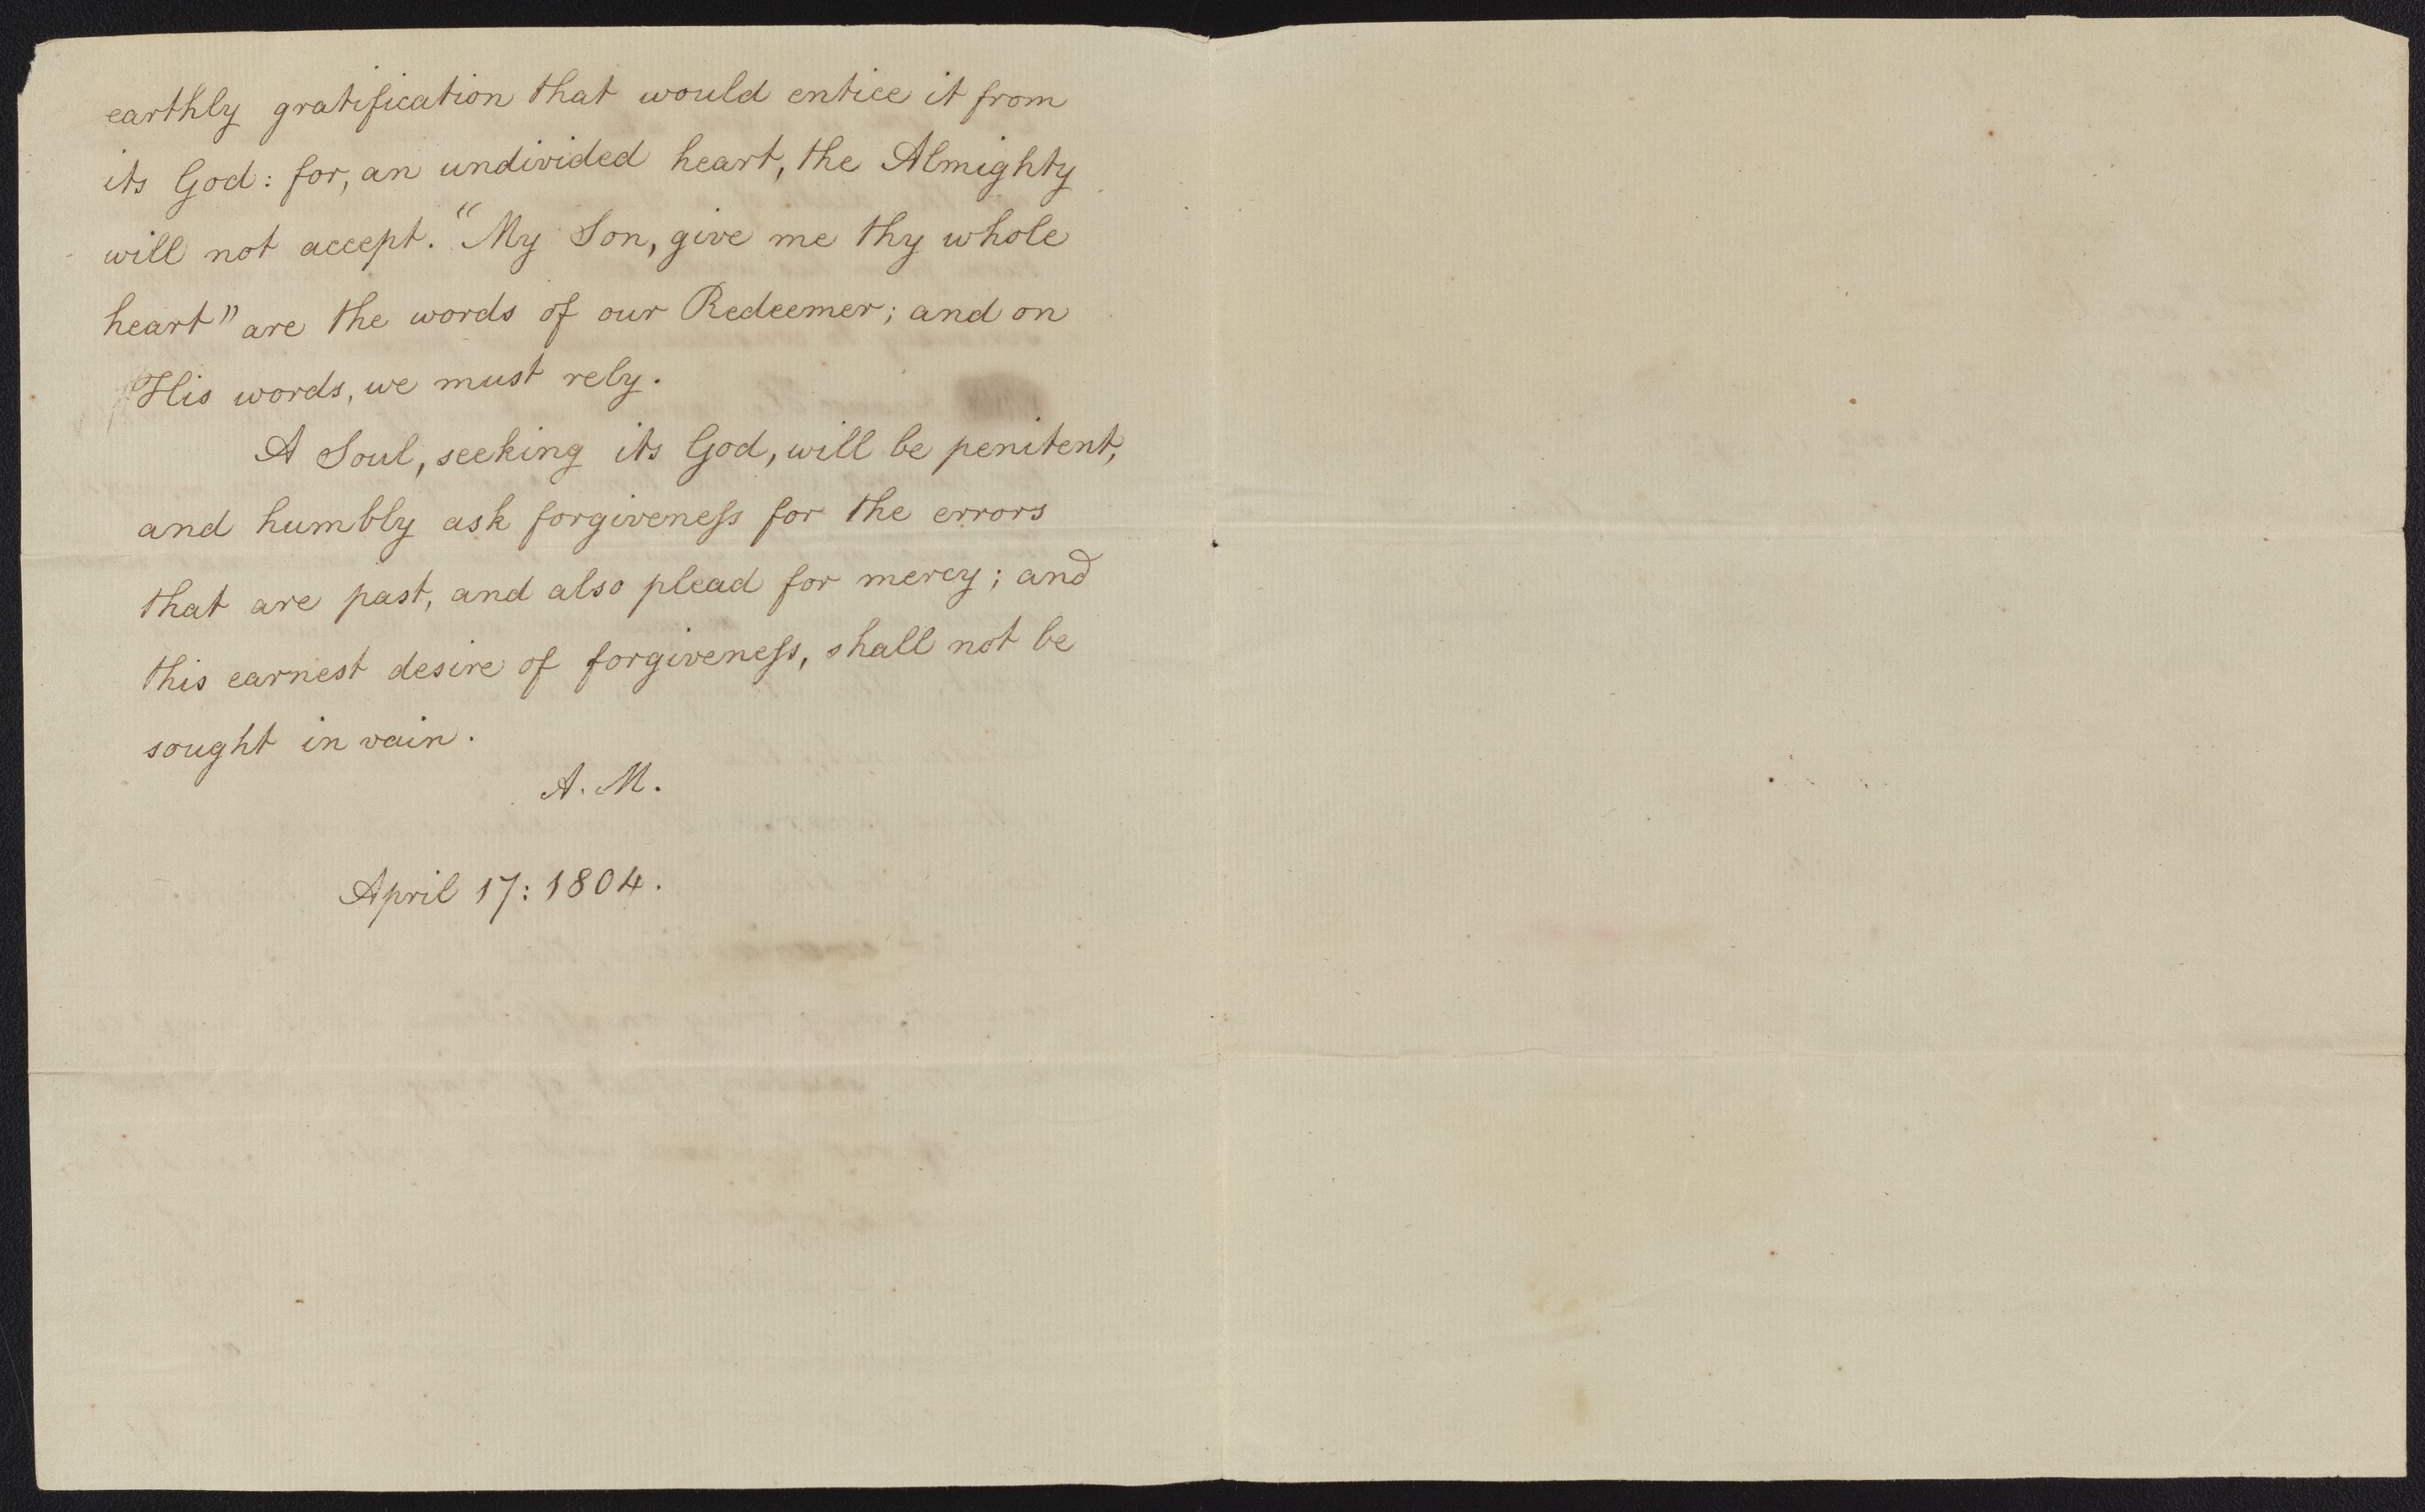 earthly gratification that would entice it from
its God: for, an undivided heart, the Almighty
will not accept. "My Son, give me thy whole
heart" are the words of our Redeemer; and on
His words, we must rely.
A Soul, seeking its God, will be penitent,
and humbly ask forgiveneſs for the errors
that are past, and also plead for mercy; and
this earnest desire of forgiveneſs, shall not be
sought in vain.
A. M.
April 17: 1804.